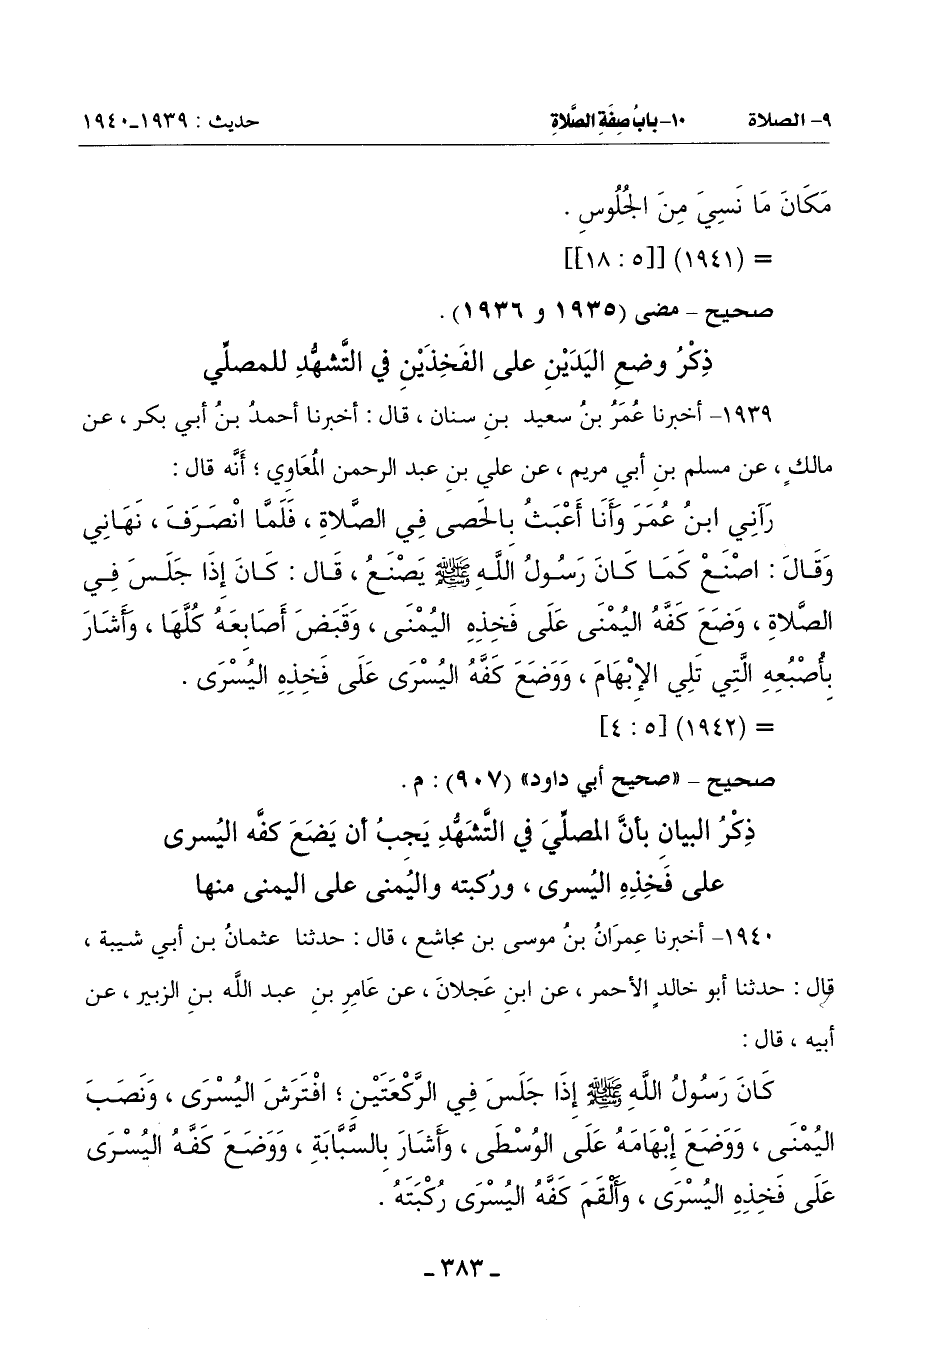 ٩- الصلاة ١٠- بابُ صِفَةِ الصَّلاةِ حديث : ١٩٣٩-١٩٤٠
مَكَانَ مَا نَسِيَ مِنَ الجُلُوسِ .
= (١٩٤١) [[٥ : ١٨]]
صحيح - مضى (١٩٣٥ و ١٩٣٦) .
ذِكْرُ وضعِ اليَدَيْنِ على الفَخِذَيْنِ في التَّشهُّدِ للمصلِّي
١٩٣٩- أخبرنا عُمَرُ بنُ سعيد بنِ سنان ، قال : أخبرنا أحمدُ بنُ أبي بكر ، عن
مالكٍ ، عن مسلم بنِ أبي مريم ، عن علي بن عبد الرحمن المُعَاوي ؛ أنَّه قال :
رَآنِي ابنُ عُمَرَ وَأَنَا أَعْبَثُ بِالحَصى فِي الصَّلاةِ ، فَلَمَّا انْصَرَفَ ، نَهَانِي
وَقَالَ : اصْنَعْ كَمَا كَانَ رَسُولُ اللَّهِ ﷺ يَصْنَعُ ، قَال : كَانَ إِذَا جَلَسَ فِي
الصَّلاةِ ، وَضَعَ كَفَّهُ اليُمْنَى عَلَى فَخِذِهِ اليُمْنَى ، وَقَبَضَ أَصَابِعَهُ كُلَّهَا ، وَأَشَارَ
بِأُصْبُعِهِ الَّتِي تَلِي الإِبْهَامَ ، وَوَضَعَ كَفَّهُ اليُسْرَى عَلَى فَخِذِهِ اليُسْرَى .
= (١٩٤٢) [٥ : ٤]
صحيح - «صحيح أبي داود» (٩٠٧) : م .
ذِكْرُ البيان بأنَّ المصلِّيَ في التَّشَهُّدِ يَجبُ أن يَضَعَ كفَّه اليُسرى
على فَخِذِهِ اليُسرى ، ورُكبته واليُمنى على اليمنى منها
١٩٤٠- أخبرنا عِمرَانُ بنُ موسى بن مجاشع ، قال : حدثنا عثمانُ بن أبي شيبة ،
قال : حدثنا أبو خالدٍ الأحمر ، عن ابنِ عَجلانَ ، عن عَامِرِ بنِ عبد اللَّه بنِ الزبير ، عن
أبيه ، قال :
كَانَ رَسُولُ اللَّهِ ﷺ إِذَا جَلَسَ فِي الرَّكْعَتَيْنِ ؛ افْتَرَشَ اليُسْرَى ، وَنَصَبَ
اليُمْنَى ، وَوَضَعَ إِبْهَامَهُ عَلَى الوُسْطَى ، وَأَشَارَ بِالسَّبَّابَةِ ، وَوَضَعَ كَفَّهُ اليُسْرَى
عَلَى فَخِذِهِ اليُسْرَى ، وَأَلْقَمَ كَفَّهُ اليُسْرَى رُكْبَتَهُ .
- ٣٨٣ -